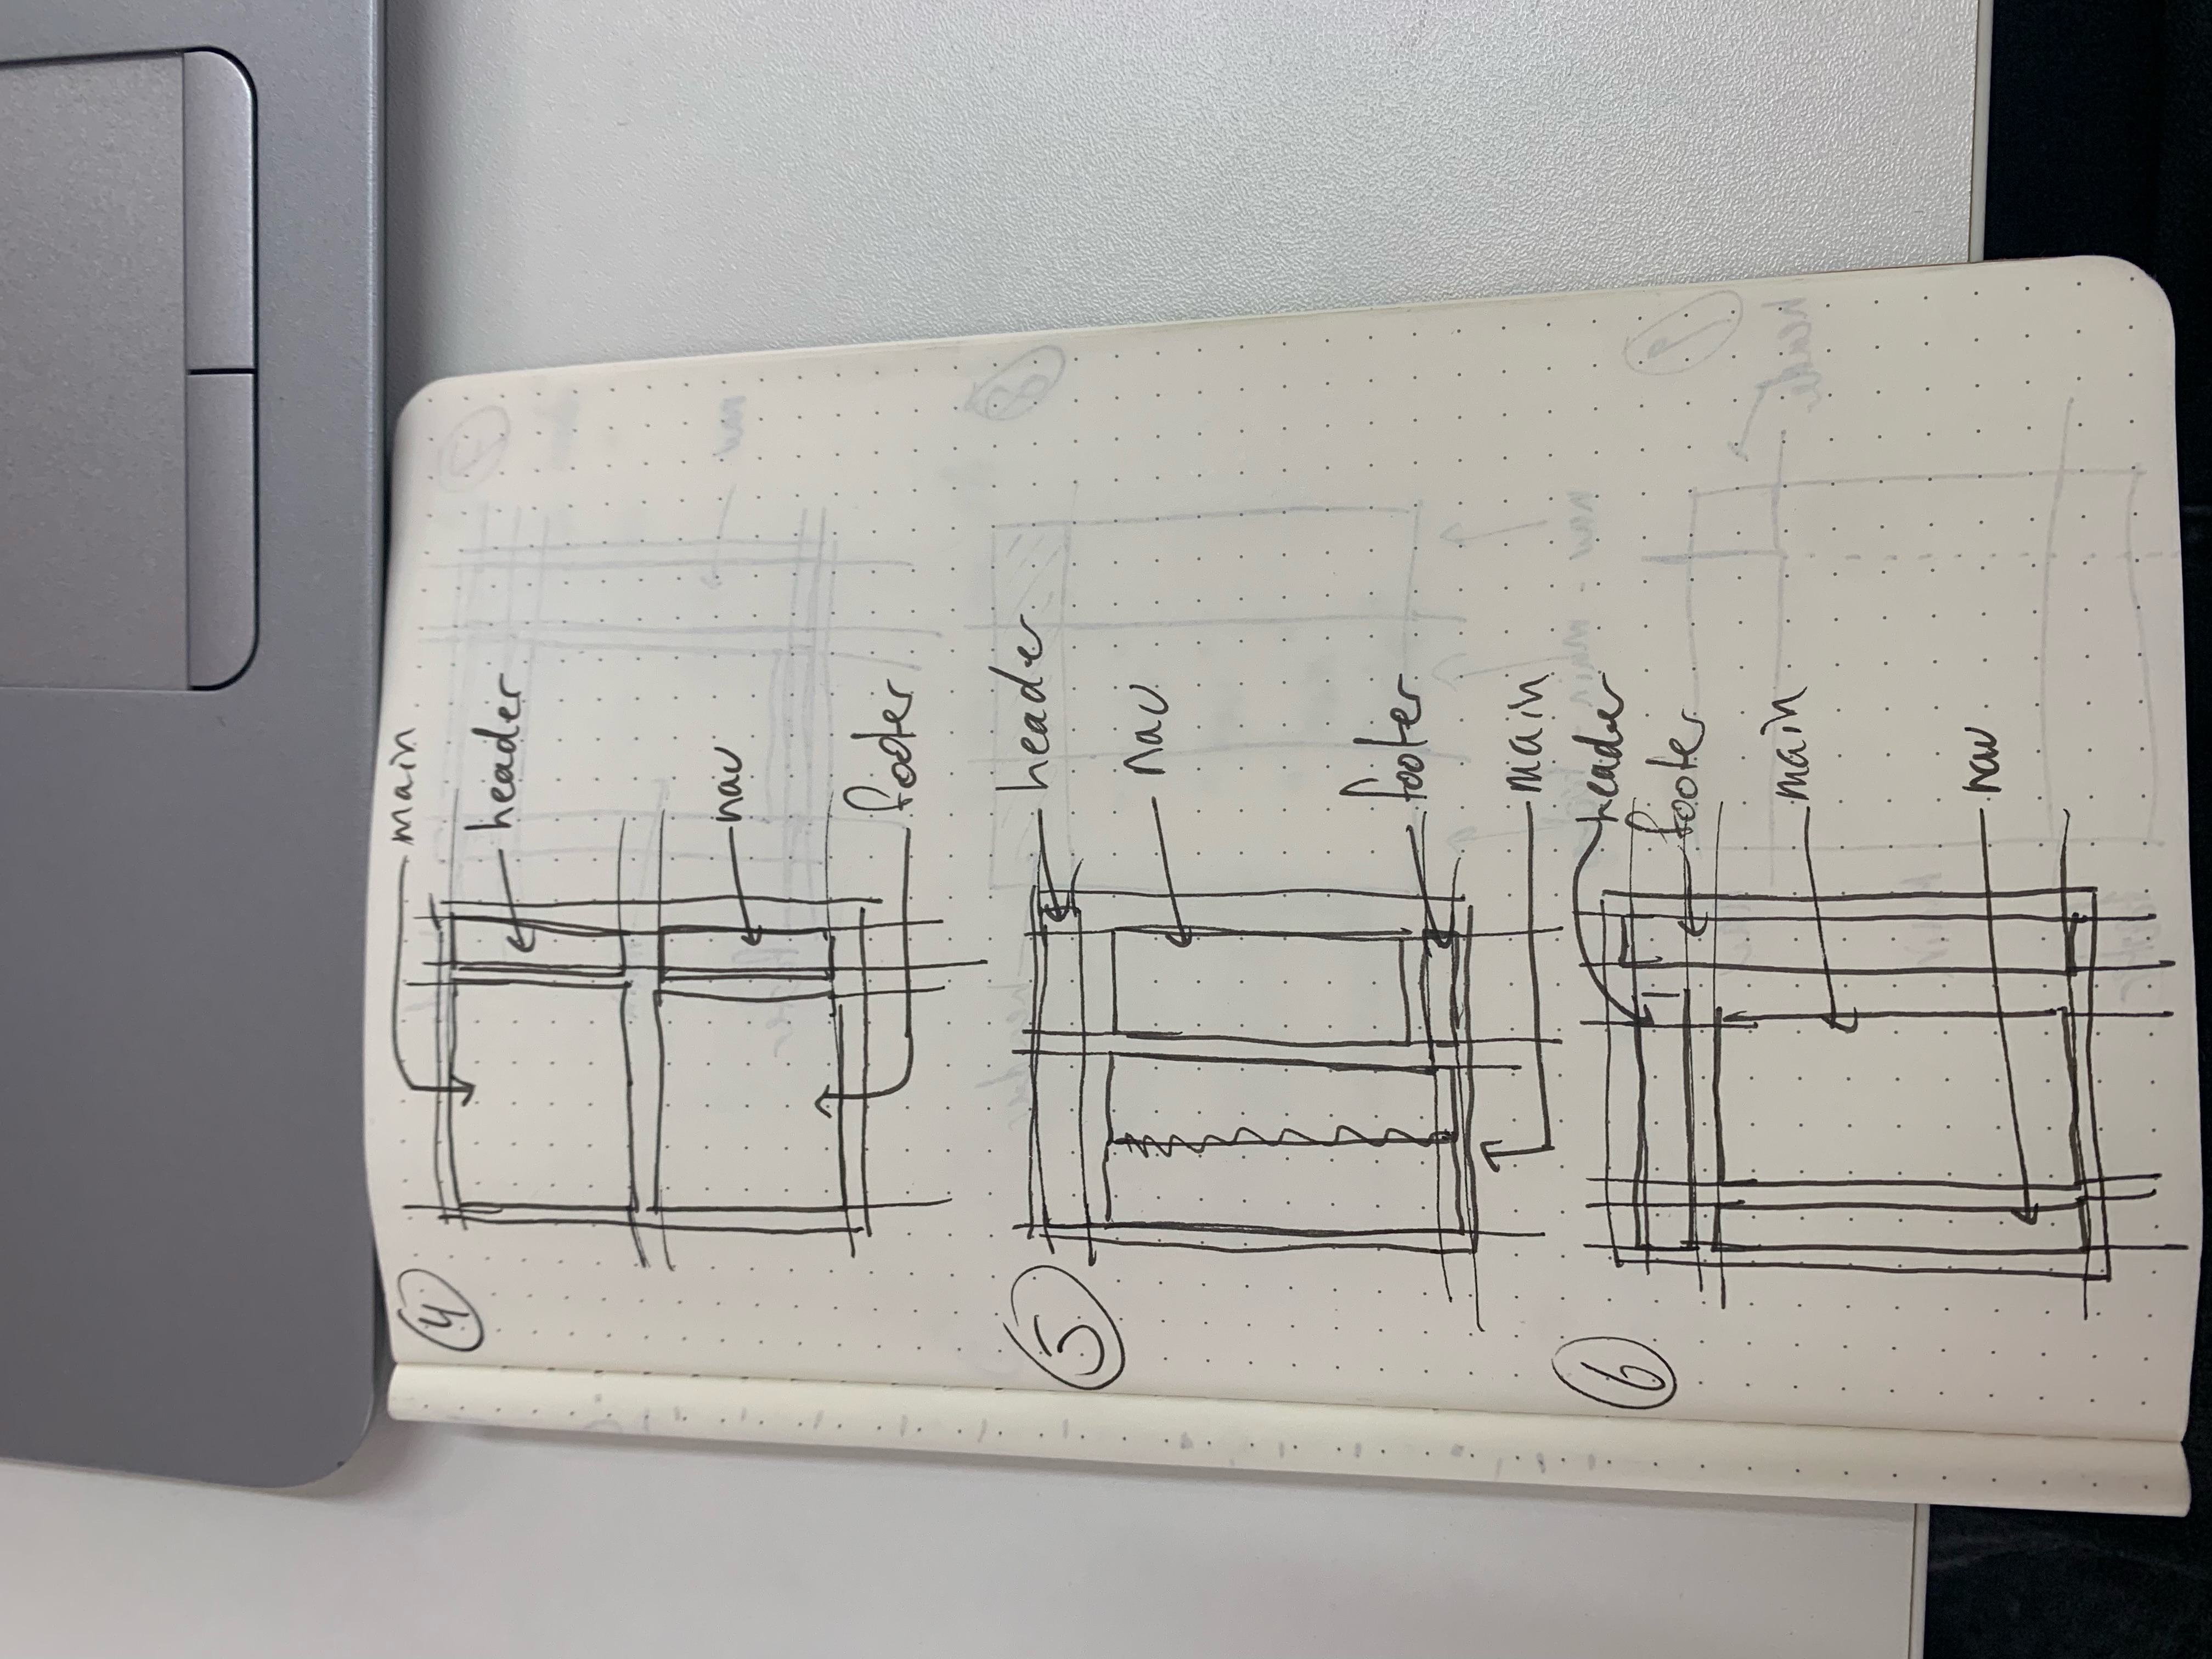 4
main
header
nav
footer
5
header
nav
footer
main
6
header
footer
main
nav